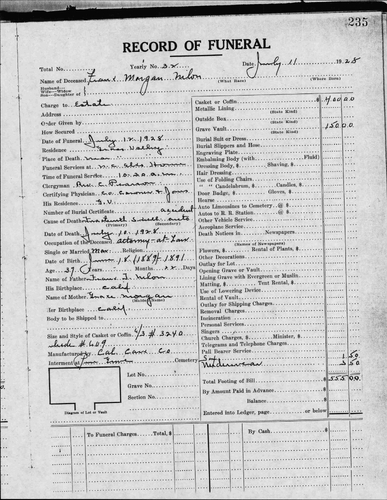 235
RECORD OF FUNERAL
Total No. Yearly No. 32 Date July 11 1928
Name of Deceased Morgan Nilon
(What State) (Where State)
Husband—
Wife—Widow
Son—Daughter of
Charge to Estate
Address
Order Given by
How Secured
Date of Funeral July 12 1928
Residence Grass Valley
Place of Death near
Funeral Services at
Time of Funeral Service 10:30 a.m.
Clergyman Rev. C. Pearson
Certifying Physician Co. Coroner &
His Residence G.V.
Number of Burial Certificate accident
Cause of Death auto
(Primary) (Secondary)
Date of Death July 10 1928
Occupation of the Deceased attorney-at-Law
Single or Married
Date of Birth 1891
Age 37 Years Months 22 Days
Name of Father Nilon
His Birthplace Calif
Name of Mother Grace Morgan
Her Birthplace Calif
Body to be Shipped to
Size and Style of Casket or Coffin 6/3 # 3240
# 609
Manufactured by Cal. Cask. Co
Interment Cemetery
Lot No.
Grave No.
Section No.
Diagram of Lot or Vault
Casket or Coffin $ 400 00
Metallic Lining
(State Kind)
Outside Box
(State Kind)
Grave Vault 150 00
(State Kind)
Burial Suit or Dress
Burial Slippers and Hose
Engraving Plate
Embalming Body (with Fluid)
Dressing Body, $ Shaving, $
Hair Dressing
Use of Folding Chairs
" " Candelabrum, $ Candles, $
Door Badge, $ Gloves, $
Hearse
Auto Limousines to Cemetery @ $
Autos to R. R. Station @ $
Other Vehicle Service
Aeroplane Service
Death Notices in Newspapers
(Names of Newspapers)
Flowers, $ Rental of Plants, $
Other Decorations
Outlay for Lot
Opening Grave or Vault
Lining Grave with Evergreen or Muslin
Matting, $ Tent Rental, $
Use of Lowering Device
Rental of Vault
Outlay for Shipping Charges
Removal Charges
Incineration
Personal Services
Singers
Church Charges, $ Minister, $
Telegrams and Telephone Charges
Pall Bearer Service
1 50
3 50
Total Footing of Bill $ 555 00
By Amount Paid in Advance
Balance $
Entered into Ledger, page or below
To Funeral Charges Total, $ By Cash $